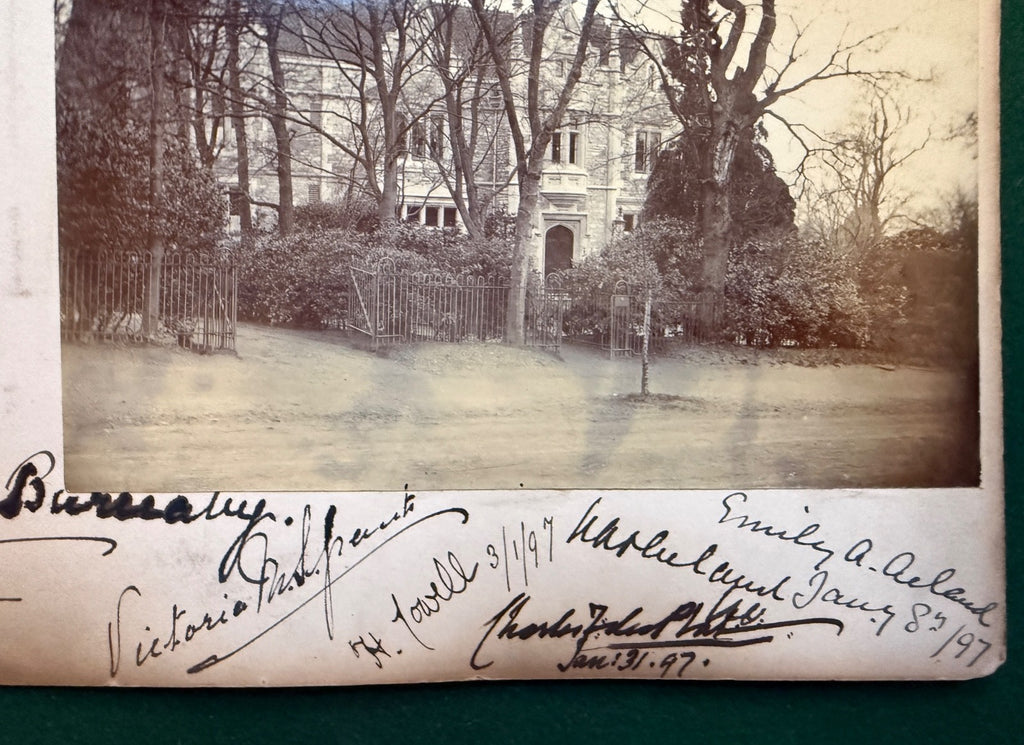 Burnaby.
Victoria M. S. Grant
H. Lowell 3/1/97
Emily A. Acland
Jany 8th/97
Charles F. du Plat
Jan: 31. 97.